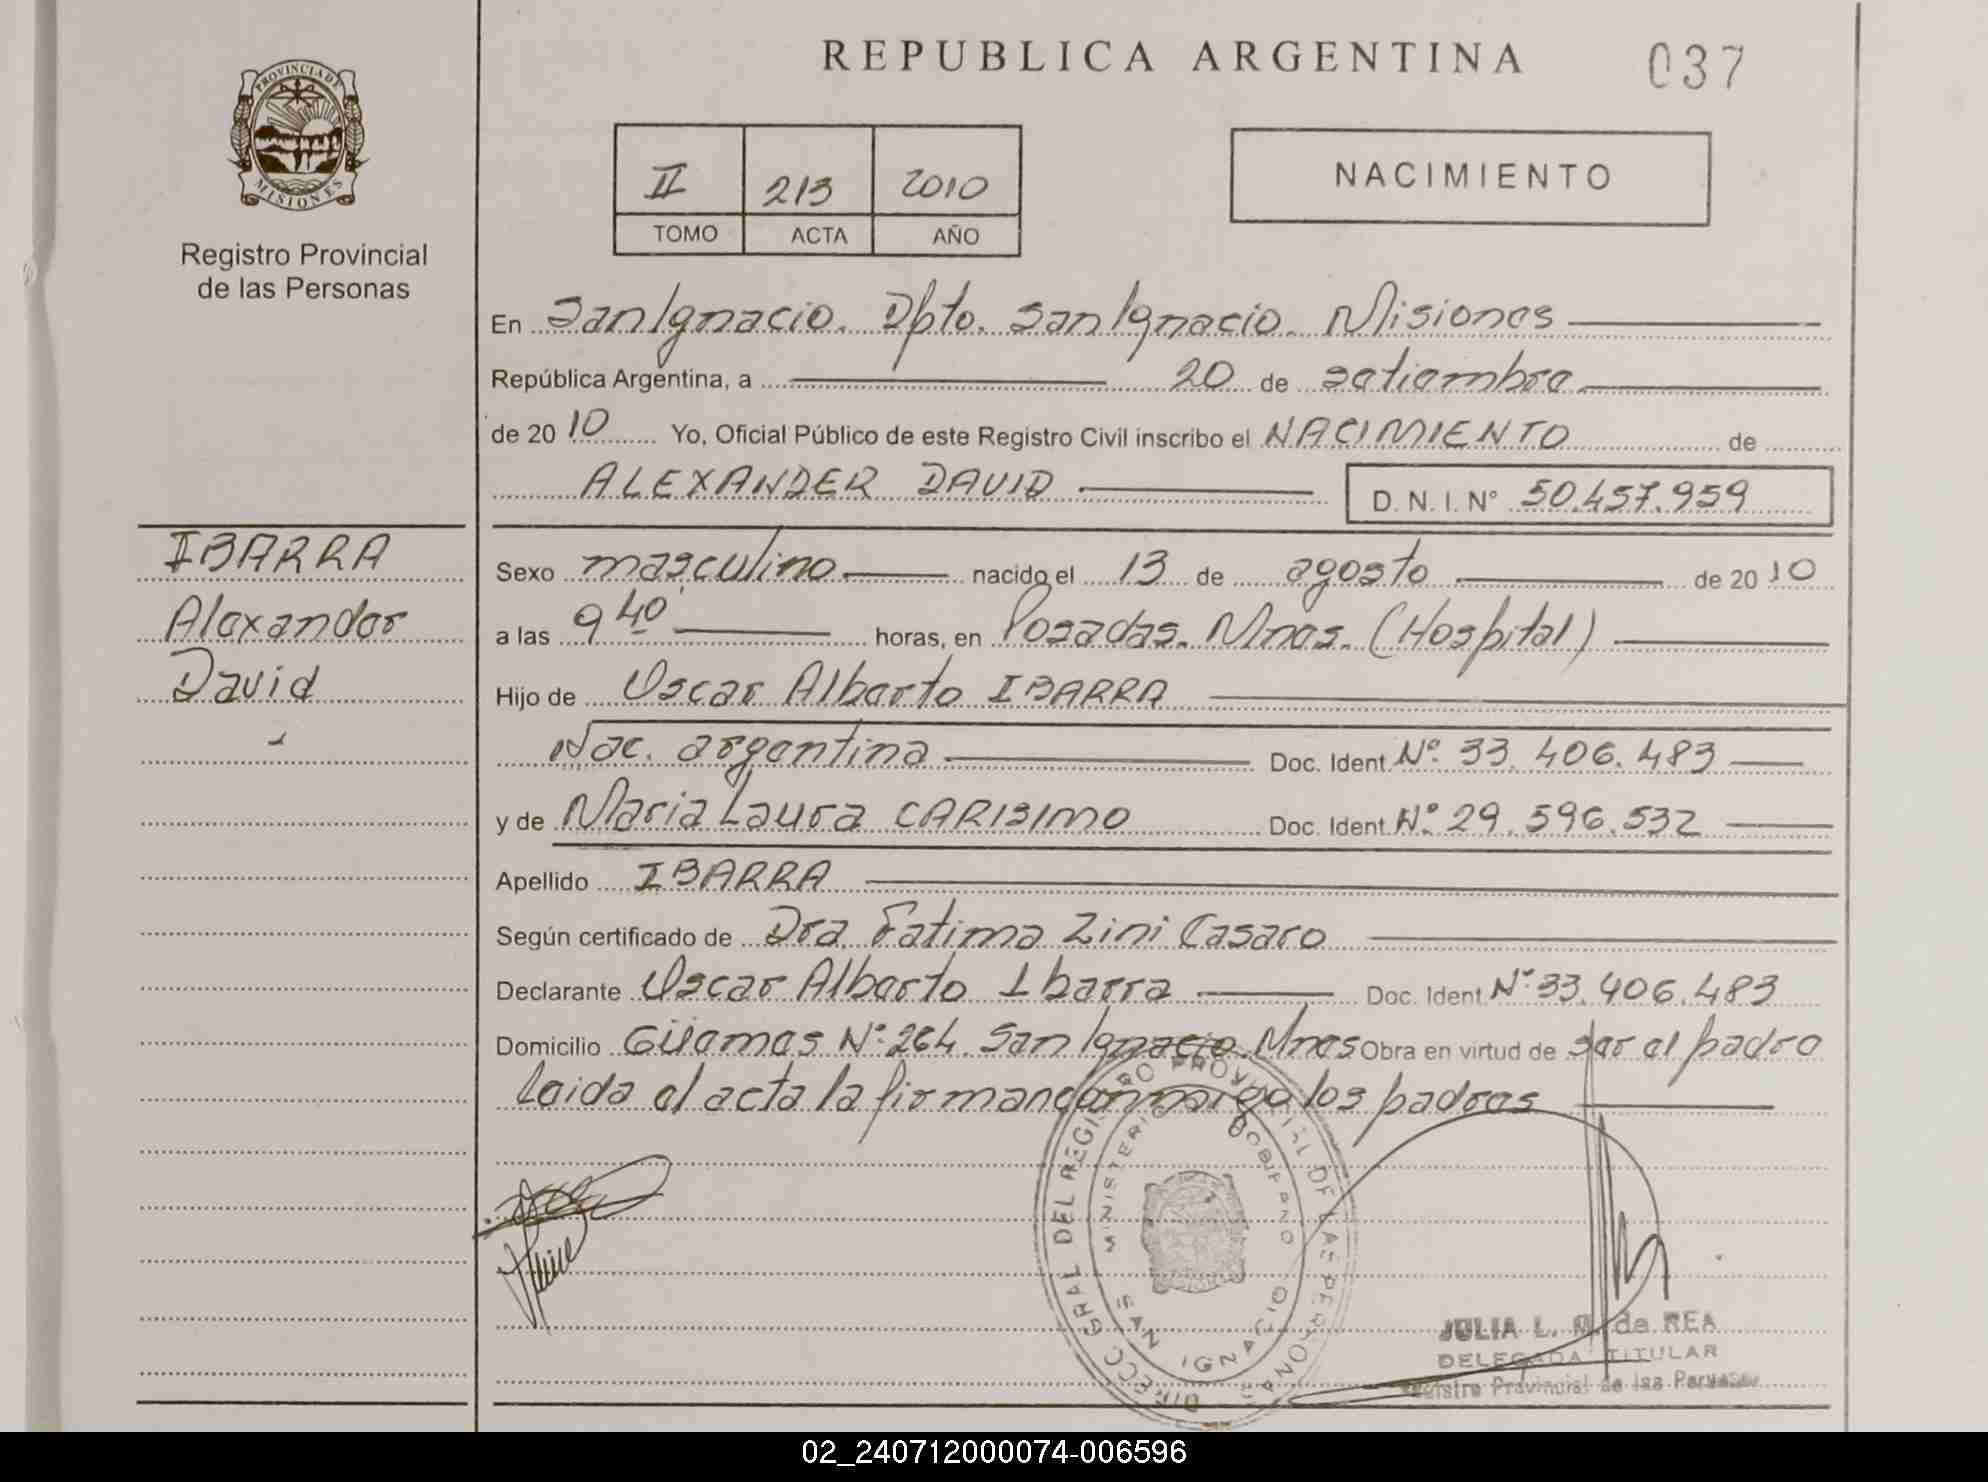 REPUBLICA ARGENTINA
037
PROVINCIA DE
MISIONES
Registro Provincial
de las Personas
II 213 2010
TOMO ACTA AÑO
NACIMIENTO
En San Ignacio. Dpto. San Ignacio. Misiones
República Argentina, a 20 de setiembre
de 2010 Yo, Oficial Público de este Registro Civil inscribo el NACIMIENTO de
ALEXANDER DAVID D. N. I. N° 50.457.959
IBARRA
Alexander
David
Sexo masculino nacido el 13 de agosto de 2010
a las 9 40' horas, en Posadas. Mnes. (Hospital)
Hijo de Oscar Alberto IBARRA
Nac. argentina Doc. Ident N°. 33.406.483
y de Maria Laura CARISIMO Doc. Ident N°. 29.596.532
Apellido IBARRA
Según certificado de Dra. Fatima Zini Casaro
Declarante Oscar Alberto Ibarra Doc. Ident N° 33.406.483
Domicilio Güemes N° 264. San Ignacio. Mnes Obra en virtud de ser el padre
Leida el acta la firman conmigo los padres
DIRECC GRAL DEL REGISTRO PROVINCIAL DE LAS PERSONAS
MINISTERIO GOBIERNO
SAN IGNACIO
JULIA L. de REA
DELEGADA TITULAR
Registro Provincial de las Personas
02_240712000074-006596